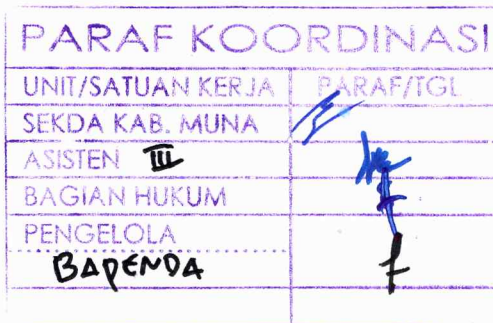 PARAF KOORDINASI
UNIT/SATUAN KERJA PARAF/TGL
SEKDA KAB. MUNA
ASISTEN III
BAGIAN HUKUM
PENGELOLA
BAPENDA